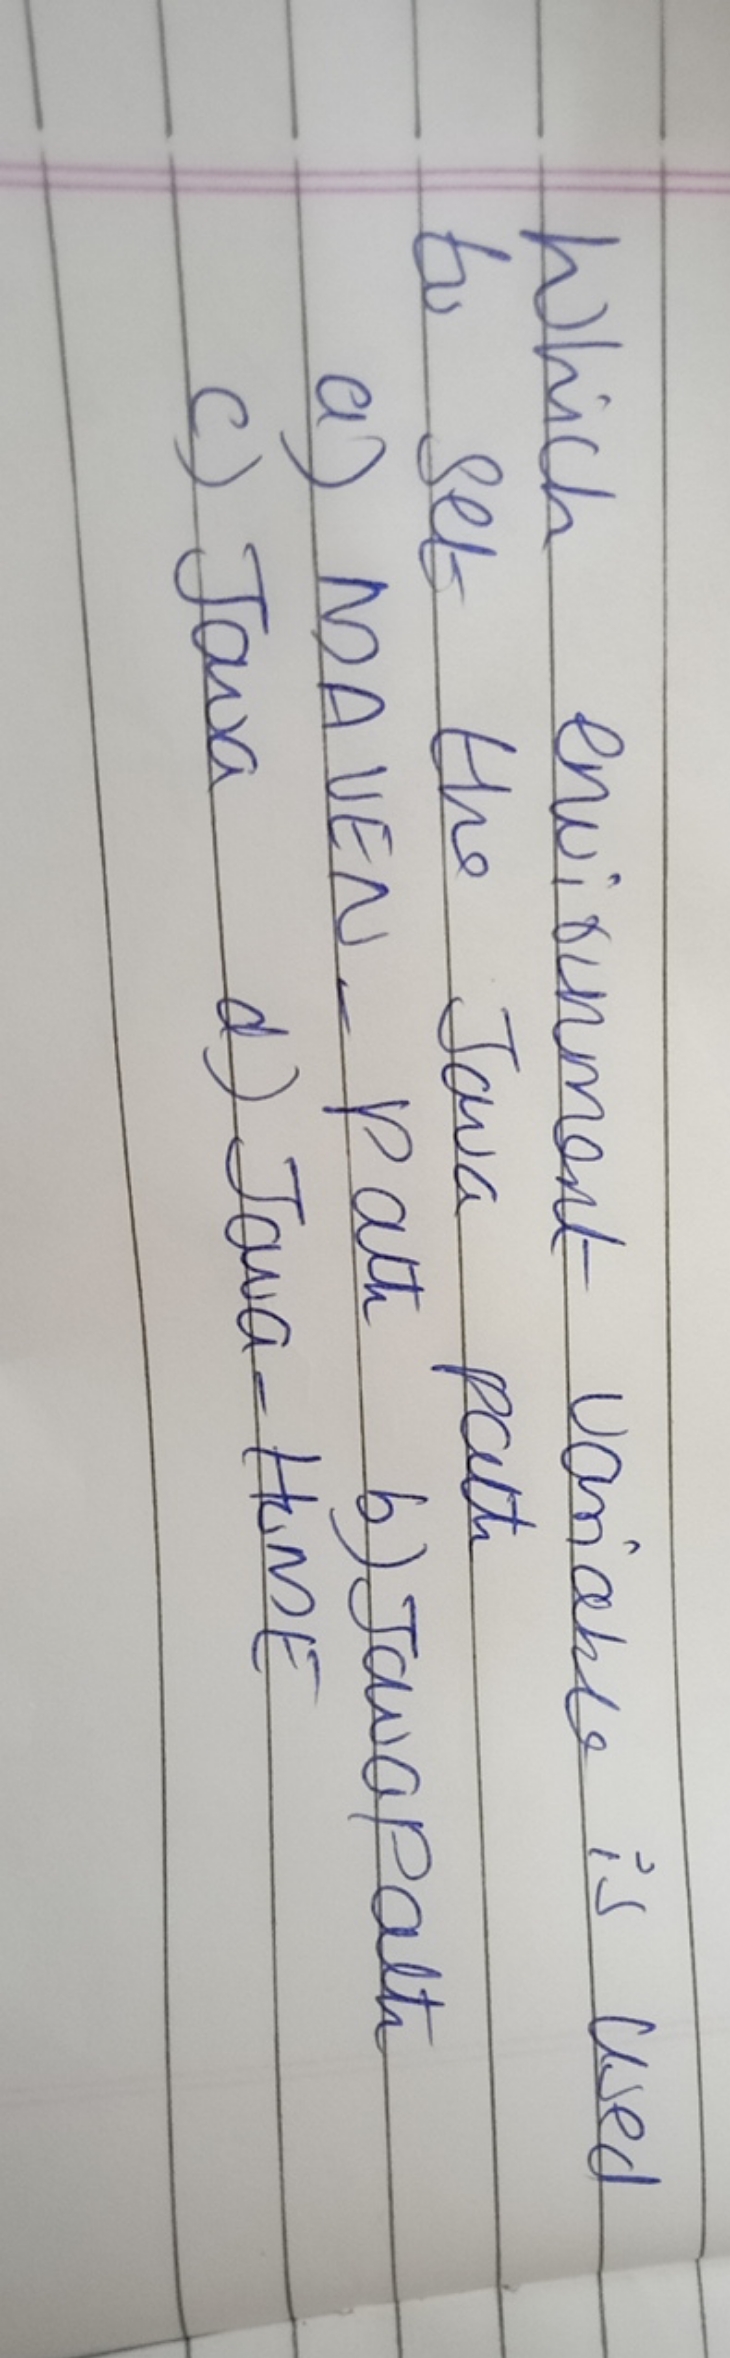 Which environment variable is used
to set the Java path
a) MAVEN_Path b) JavaPath
c) Java d) Java-HOME